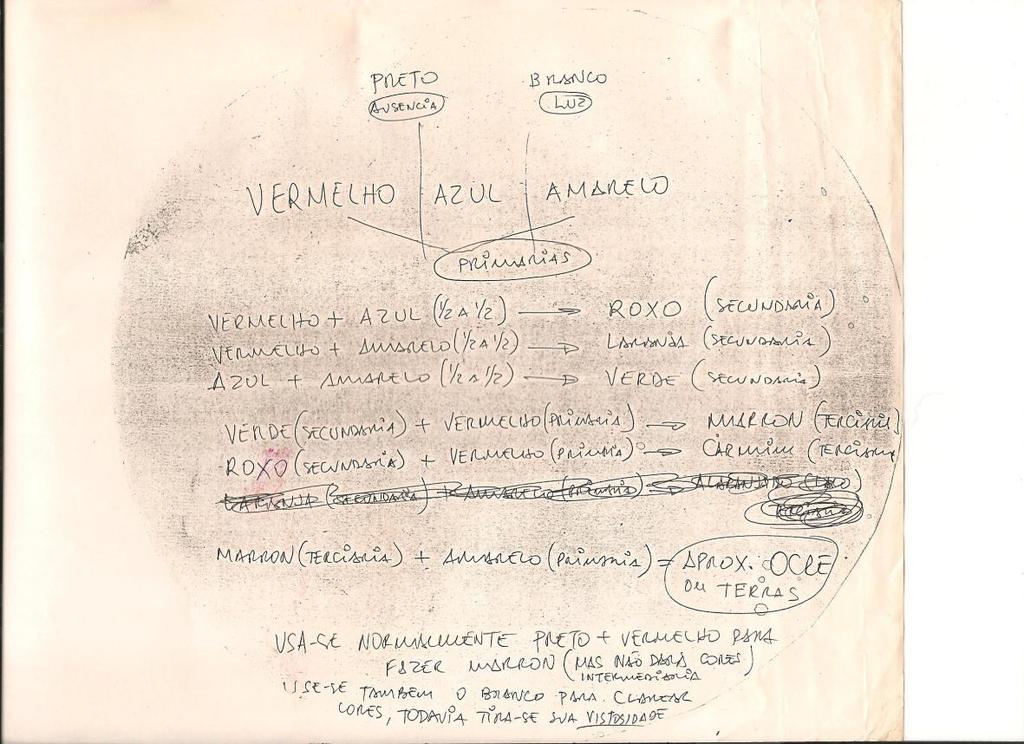 PRETO BRANCO
AUSENCIA LUZ
VERMELHO AZUL AMARELO
PRIMARIAS
VERMELHO + AZUL (1/2 A 1/2) → ROXO (SECUNDARIA)
VERMELHO + AMARELO (1/2 A 1/2) → LARANJA (SECUNDARIA)
AZUL + AMARELO (1/2 A 1/2) → VERDE (SECUNDARIA)
VERDE (SECUNDARIA) + VERMELHO (PRIMARIA) → MARRON (TERCIARIA)
ROXO (SECUNDARIA) + VERMELHO (PRIMARIA) → CARMIM (TERCIARIA
LARANJA (SECUNDARIA) + AMARELO (PRIMARIA) → ALARANJADO
TERCIARIA
MARRON (TERCIARIA) + AMARELO (PRIMARIA) = APROX. OCRE
OU TERRAS
USA-SE NORMALMENTE PRETO + VERMELHO PARA
FAZER MARRON (MAS NÃO DARÁ CORES)
INTERMEDIARIA
USE-SE TAMBEM O BRANCO PARA CLAREAR
CORES, TODAVIA TIRA-SE SUA VISTOSIDADE